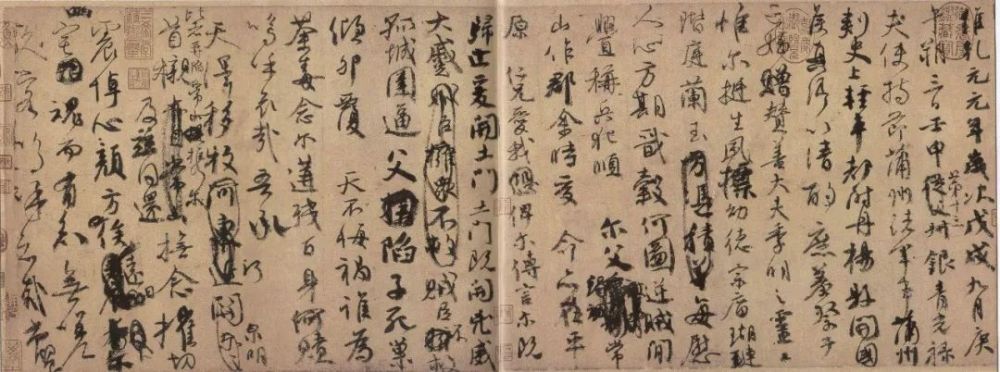 維乾元元年歲次戊戌九月庚
午朔三日壬申第十三從父叔銀青光祿
夫使持節蒲州諸軍事蒲州
刺史上輕車都尉丹楊縣開國
侯真卿以清酌庶羞祭于
亡姪贈贊善大夫季明之靈曰
惟爾挺生夙標幼德宗廟瑚璉
階庭蘭玉方憑積善每慰
人心方期戩穀何圖逆賊間
釁稱兵犯順 爾父竭誠常
山作郡余時受命亦在平
原仁兄愛我俾爾傳言爾既
歸止爰開土門土門既開兇威
大蹙賊臣擁眾不救賊臣不救
孤城圍逼父陷子死巢
傾卵覆 天不悔禍誰為
荼毒念爾遘殘百身何贖
嗚乎哀哉吾承
天澤移牧河東近河關泉明
比者再陷常山攜爾
首櫬及茲同還撫念摧切
震悼心顏方俟遠日
宅魂而有知無嗟
久客嗚呼哀哉尚饗